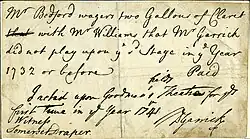 Mr Bedford wagers two Gallons of Claret
with Mr Williams that Mr Garrick
did not play upon ye Stage in ye Year
1732 or before.
Paid
I acted upon Goodman's Theatre for ye
first time in ye Year 1741
Witness
Somerset Draper
DGarrick